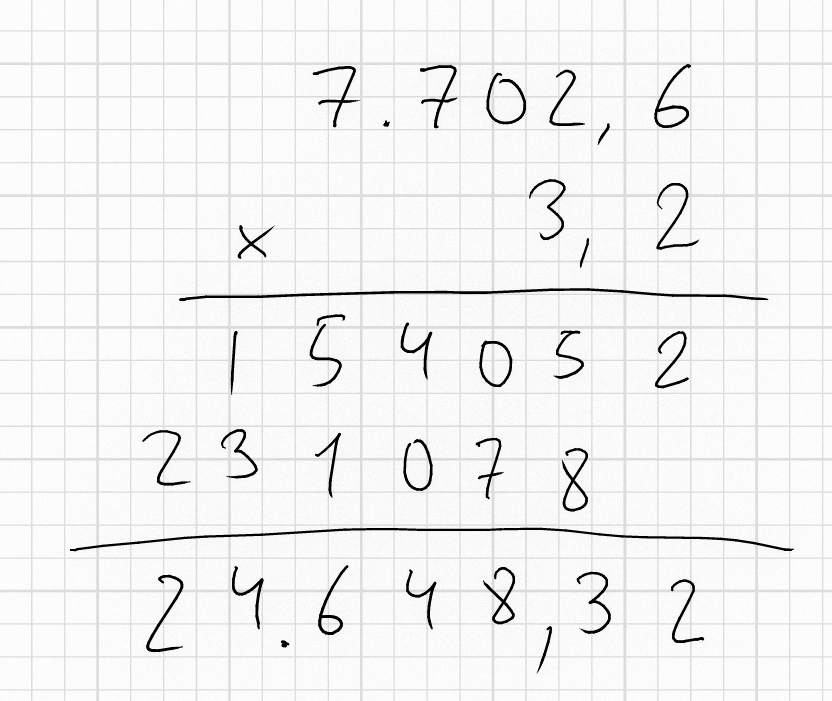 7.702,6
x 3,2
154052
231078
24.648,32